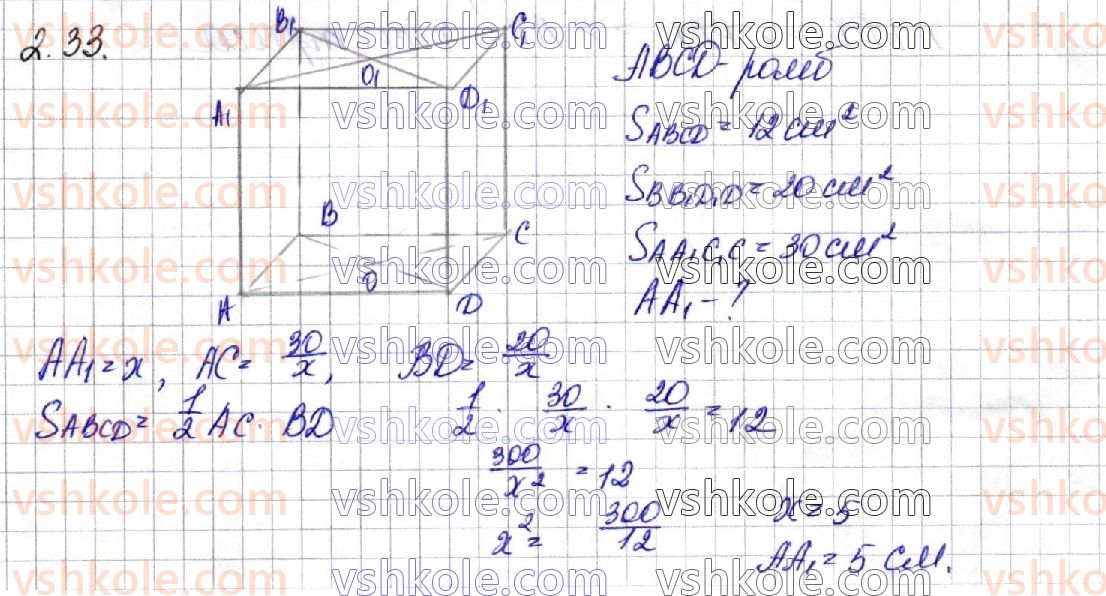 2.33.
B₁ C₁
O₁
A₁ D₁
B C
O
A D
ABCD - ромб
S_ABCD = 12 см²
S_BB₁D₁D = 20 см²
S_AA₁C₁C = 30 см²
AA₁ - ?
AA₁ = x, AC = 30/x, BD = 20/x
S_ABCD = 1/2 AC · BD 1/2 · 30/x · 20/x = 12
300/x² = 12
x² = 300/12 x = 5
AA₁ = 5 см.
vshkole.com